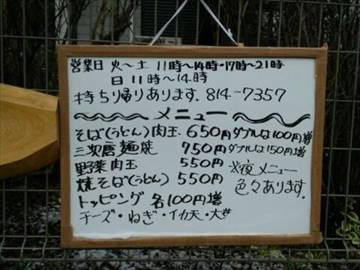 営業日 火〜土 11時〜14時・17時〜21時
日 11時〜14時
持ち帰りあります. 814-7357
〜メニュー〜
そば(うどん)肉玉. 650円 ダブルは100円増
三次唐麺焼 750円 ダブルは150円増
野菜肉玉 550円 ※夜メニュー
焼そば(うどん) 550円 色々あります.
トッピング 各100円増
チーズ・ねぎ・イカ天・大葉